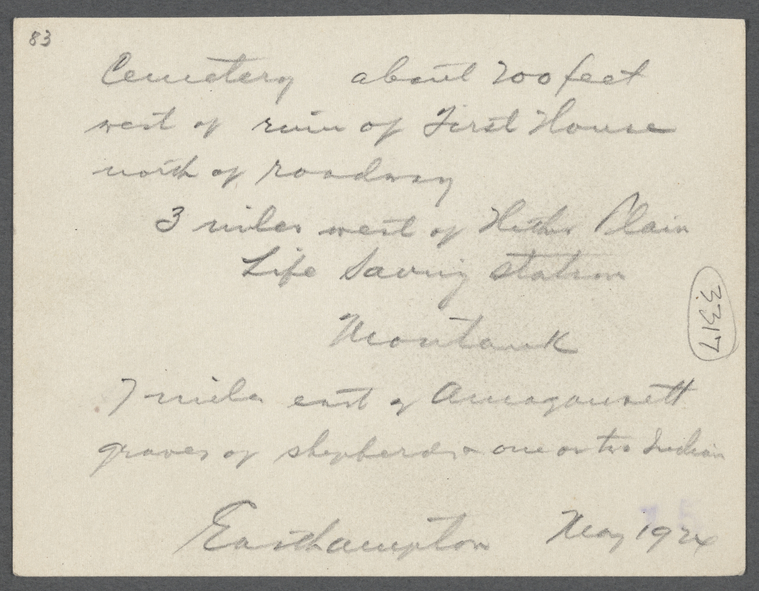 83
Cemetery about 200 feet
west of ruin of First House
north of roadway
3 miles west of Hither Plain
Life Saving station
Montauk
7 miles east of Amagansett
graves of shepherds & one or two Indian
Easthampton May 1924
3317